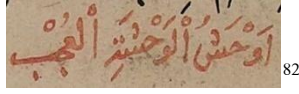 اَوْحَشُ الْوَحْشَةِ الْعُجْبُ
82